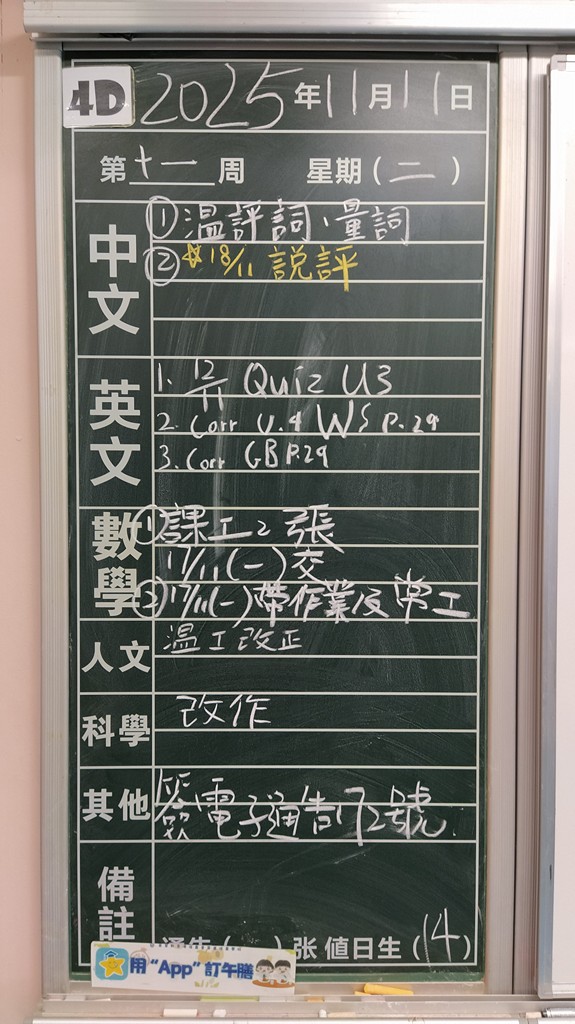 4D 2025年11月11日
第十一周 星期(二)
中文
①溫評詞、量詞
②☆18/11 説評
英文
1. 12/11 Quiz U3
2. Corr U.4 WS P.29
3. Corr GB P.29
數學
①課工2張
17/11(一)交
②17/11(一)帶作業及常工
人文
溫工改正
科學
改作
其他
簽電子通告172號.
備註
通告( )张 值日生(14)
用"App"訂午膳